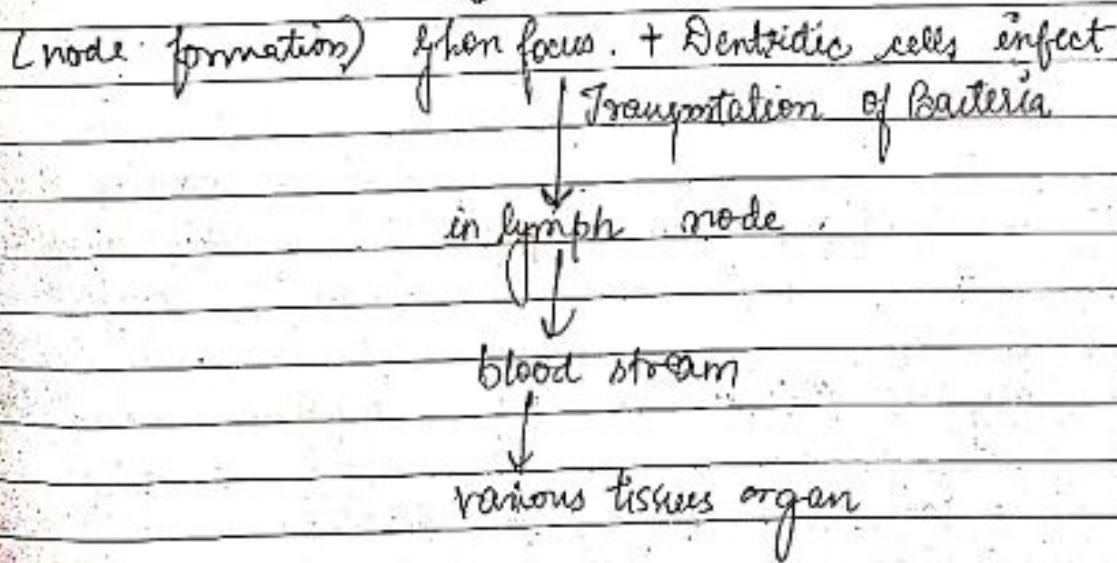 (node formation) Ghon focus. + Dentridic cells infect
of Bacteria
in lymph node.
blood stream
various tissues organ